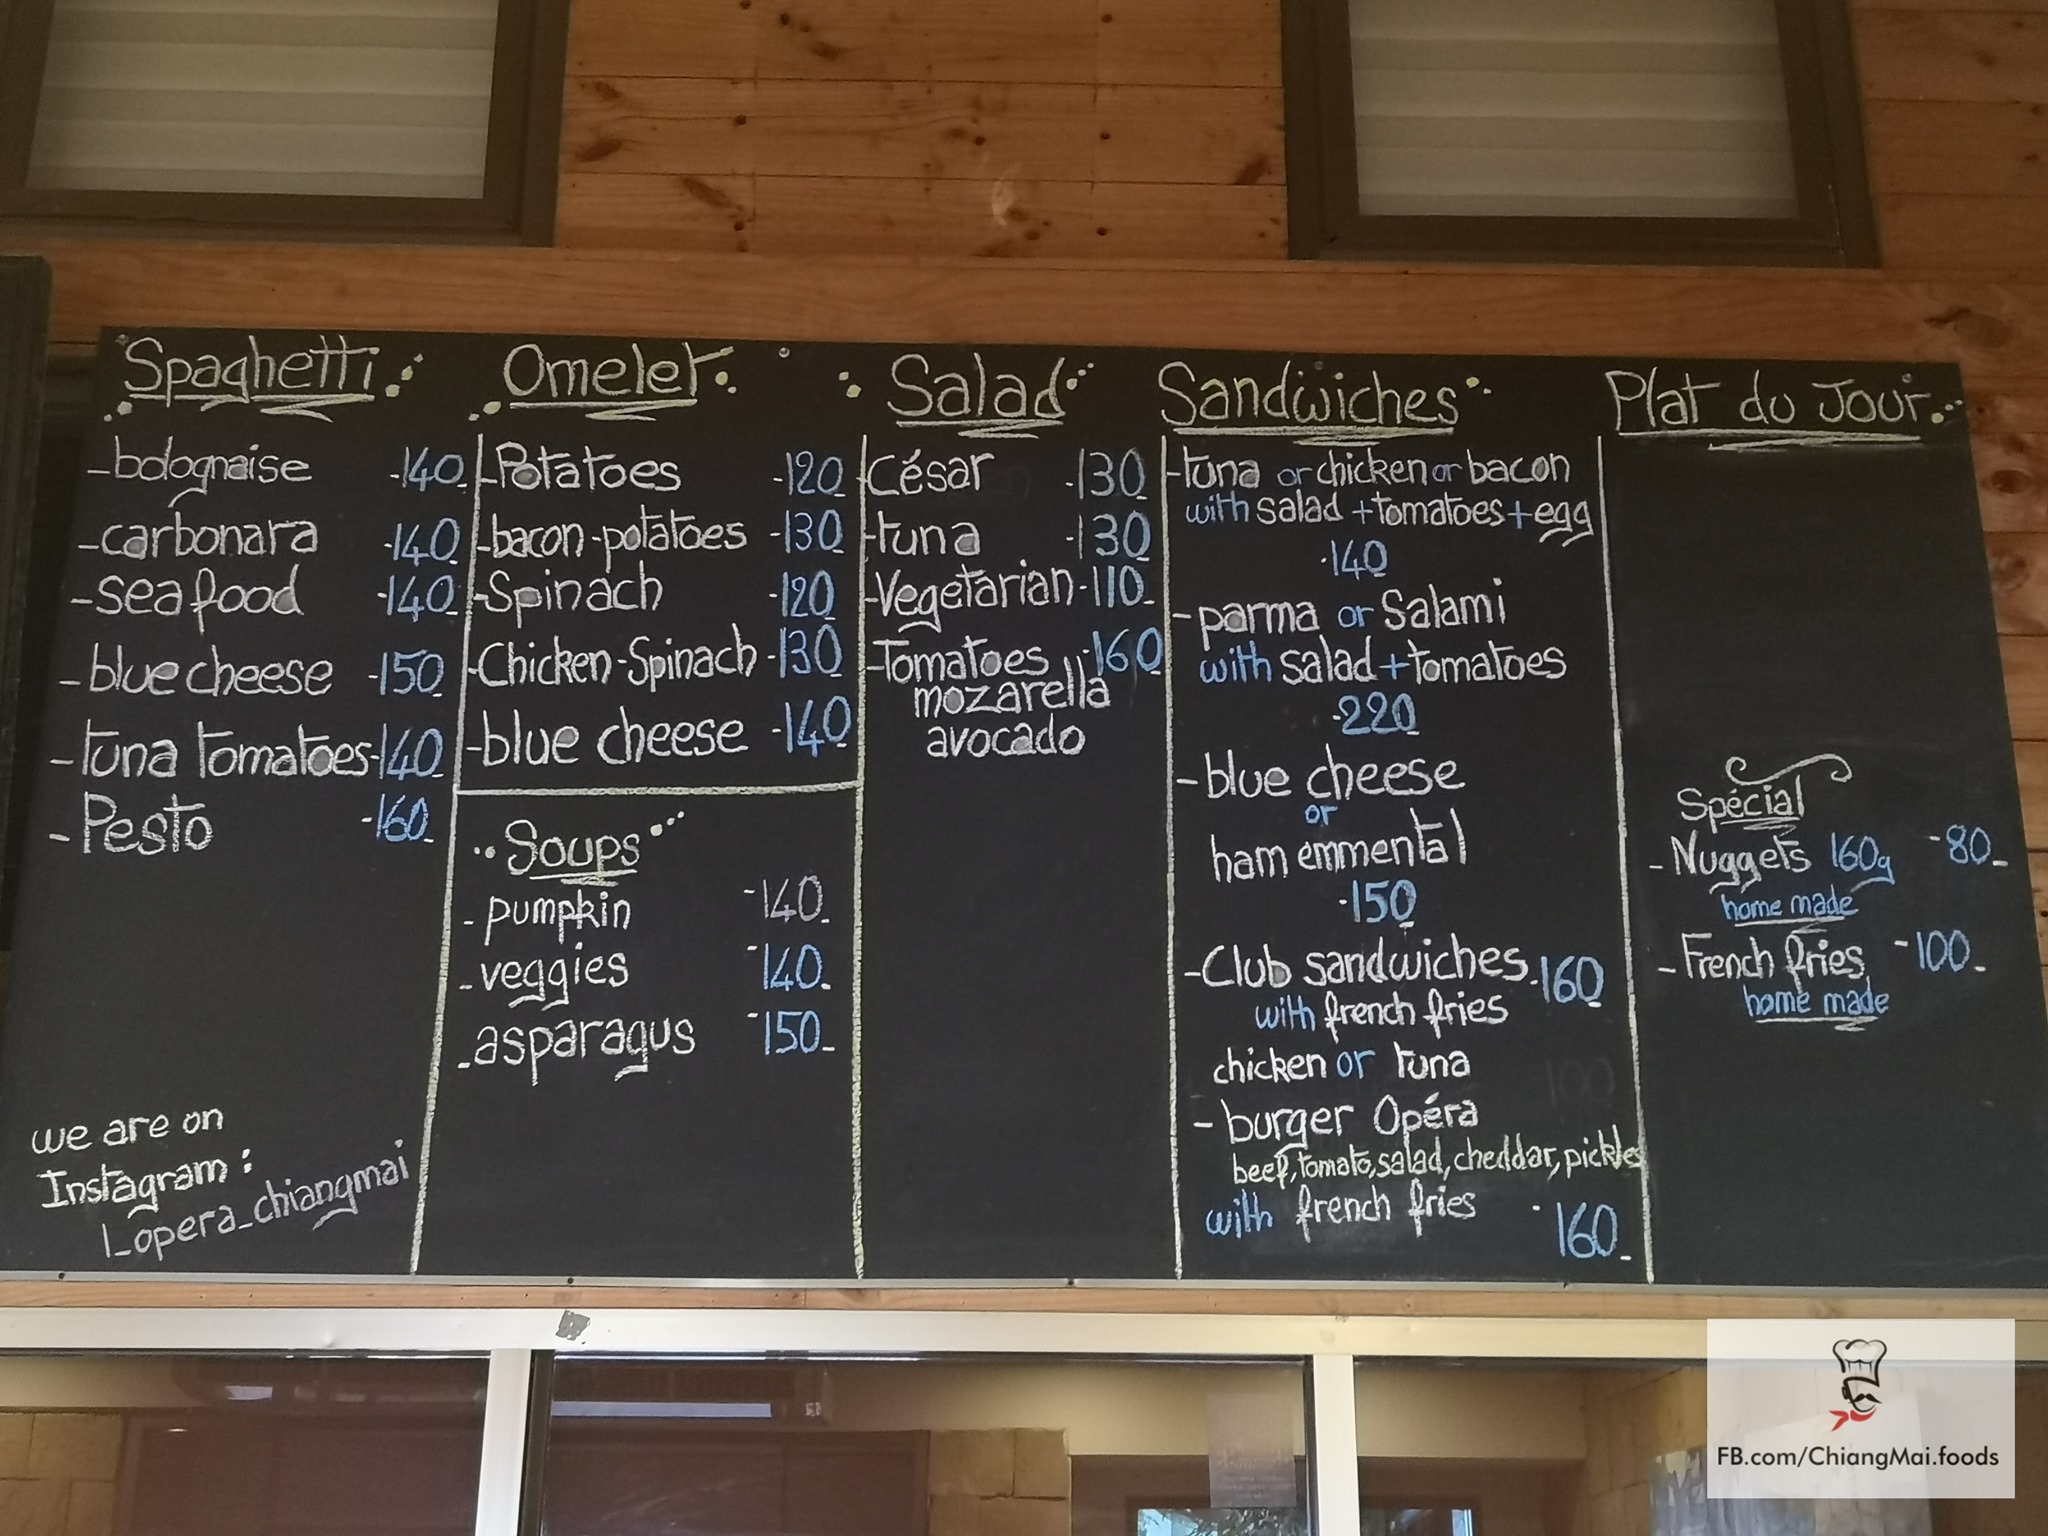 Spaghetti
-bolognaise -140
-carbonara -140
-sea food -140
-blue cheese -150
-tuna tomatoes -140
-Pesto -160
we are on
Instagram :
l_opera_chiangmai
Omelet
-Potatoes -120
-bacon-potatoes -130
-Spinach -120
-Chicken-Spinach -130
-blue cheese -140
Soups
- pumpkin -140
- veggies -140
- asparagus -150
Salad
-César -130
-tuna -130
-Vegetarian -110
-Tomatoes -160
mozarella
avocado
Sandwiches
-tuna or chicken or bacon
with salad + tomatoes + egg
-140
-parma or Salami
with salad + tomatoes
-220
-blue cheese
or
ham emmental
-150
-Club sandwiches -160
with french fries
chicken or tuna
- burger Opéra
beef, tomato, salad, cheddar, pickles
with french fries -160
Plat du Jour
Spécial
- Nuggets 160g -80
home made
- French fries -100
home made
FB.com/ChiangMai.foods